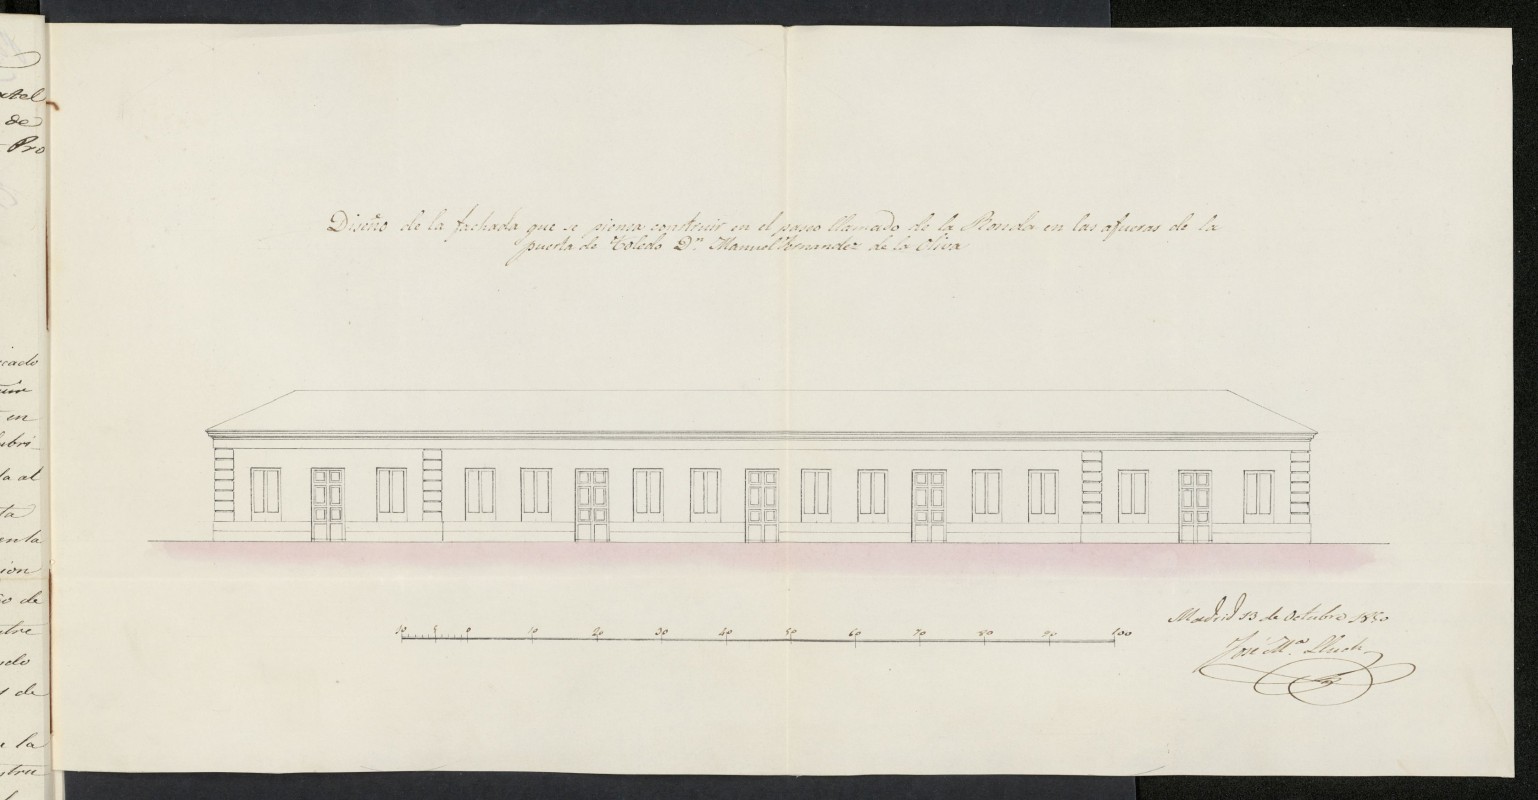 xtel
de
Pro
icado
en
lubri-
da al
ta
enta
cion
io de
ntre
ndo
s de
la
stru
Diseño de la fachada que se piensa construir en el paseo llamado de la Ronda en las afueras de la
puerta de Toledo Dn. Manuel Fernandez de la Oliva
10 5 0 10 20 30 40 50 60 70 80 90 100
Madrid 13 de Octubre 1850
José Ma. Lluch